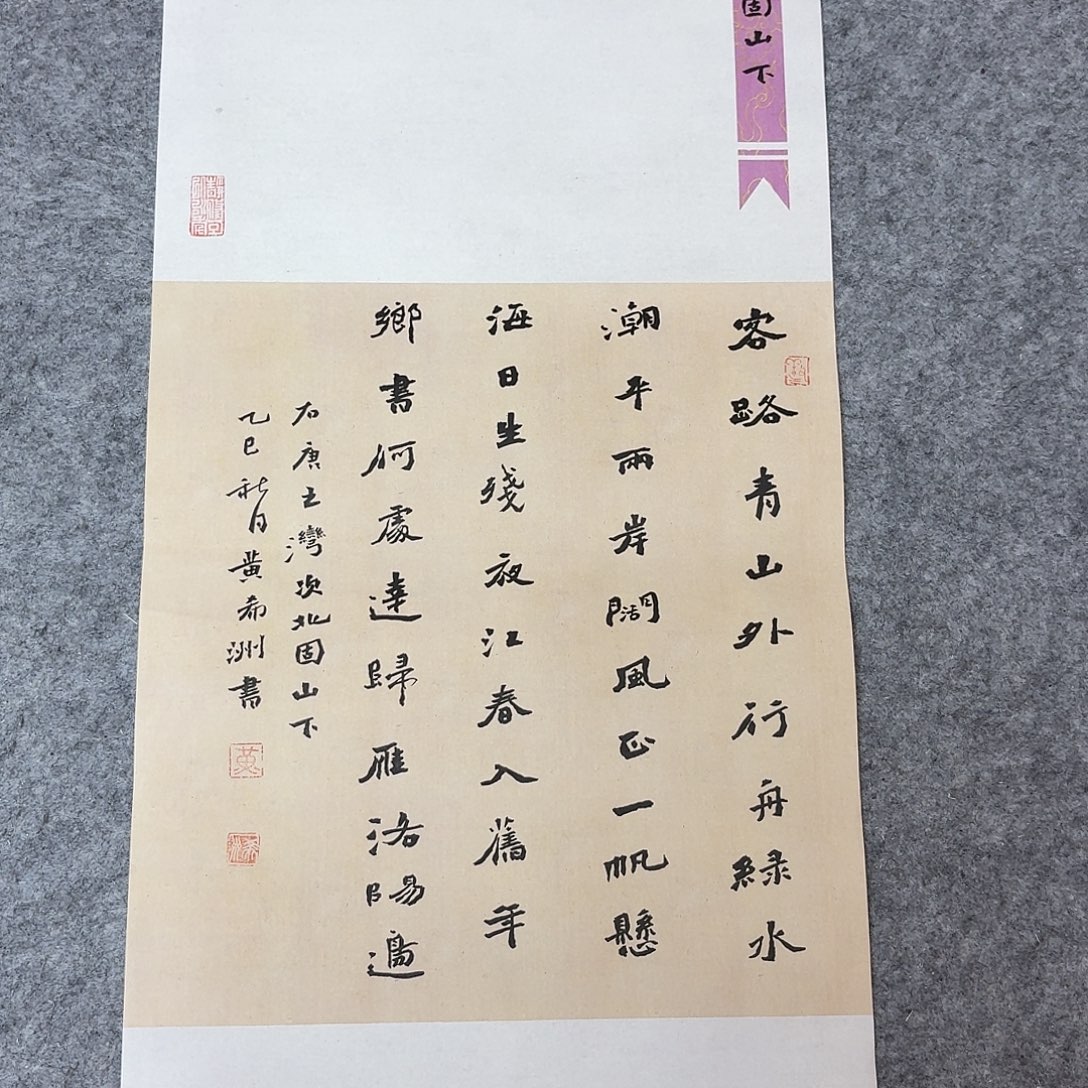 固山下
客路青山外行舟綠水
潮平兩岸闊風正一帆懸
海日生殘夜江春入舊年
鄉書何處達歸雁洛陽邊
右唐王灣次北固山下
乙巳秋月黃希洲書
黃